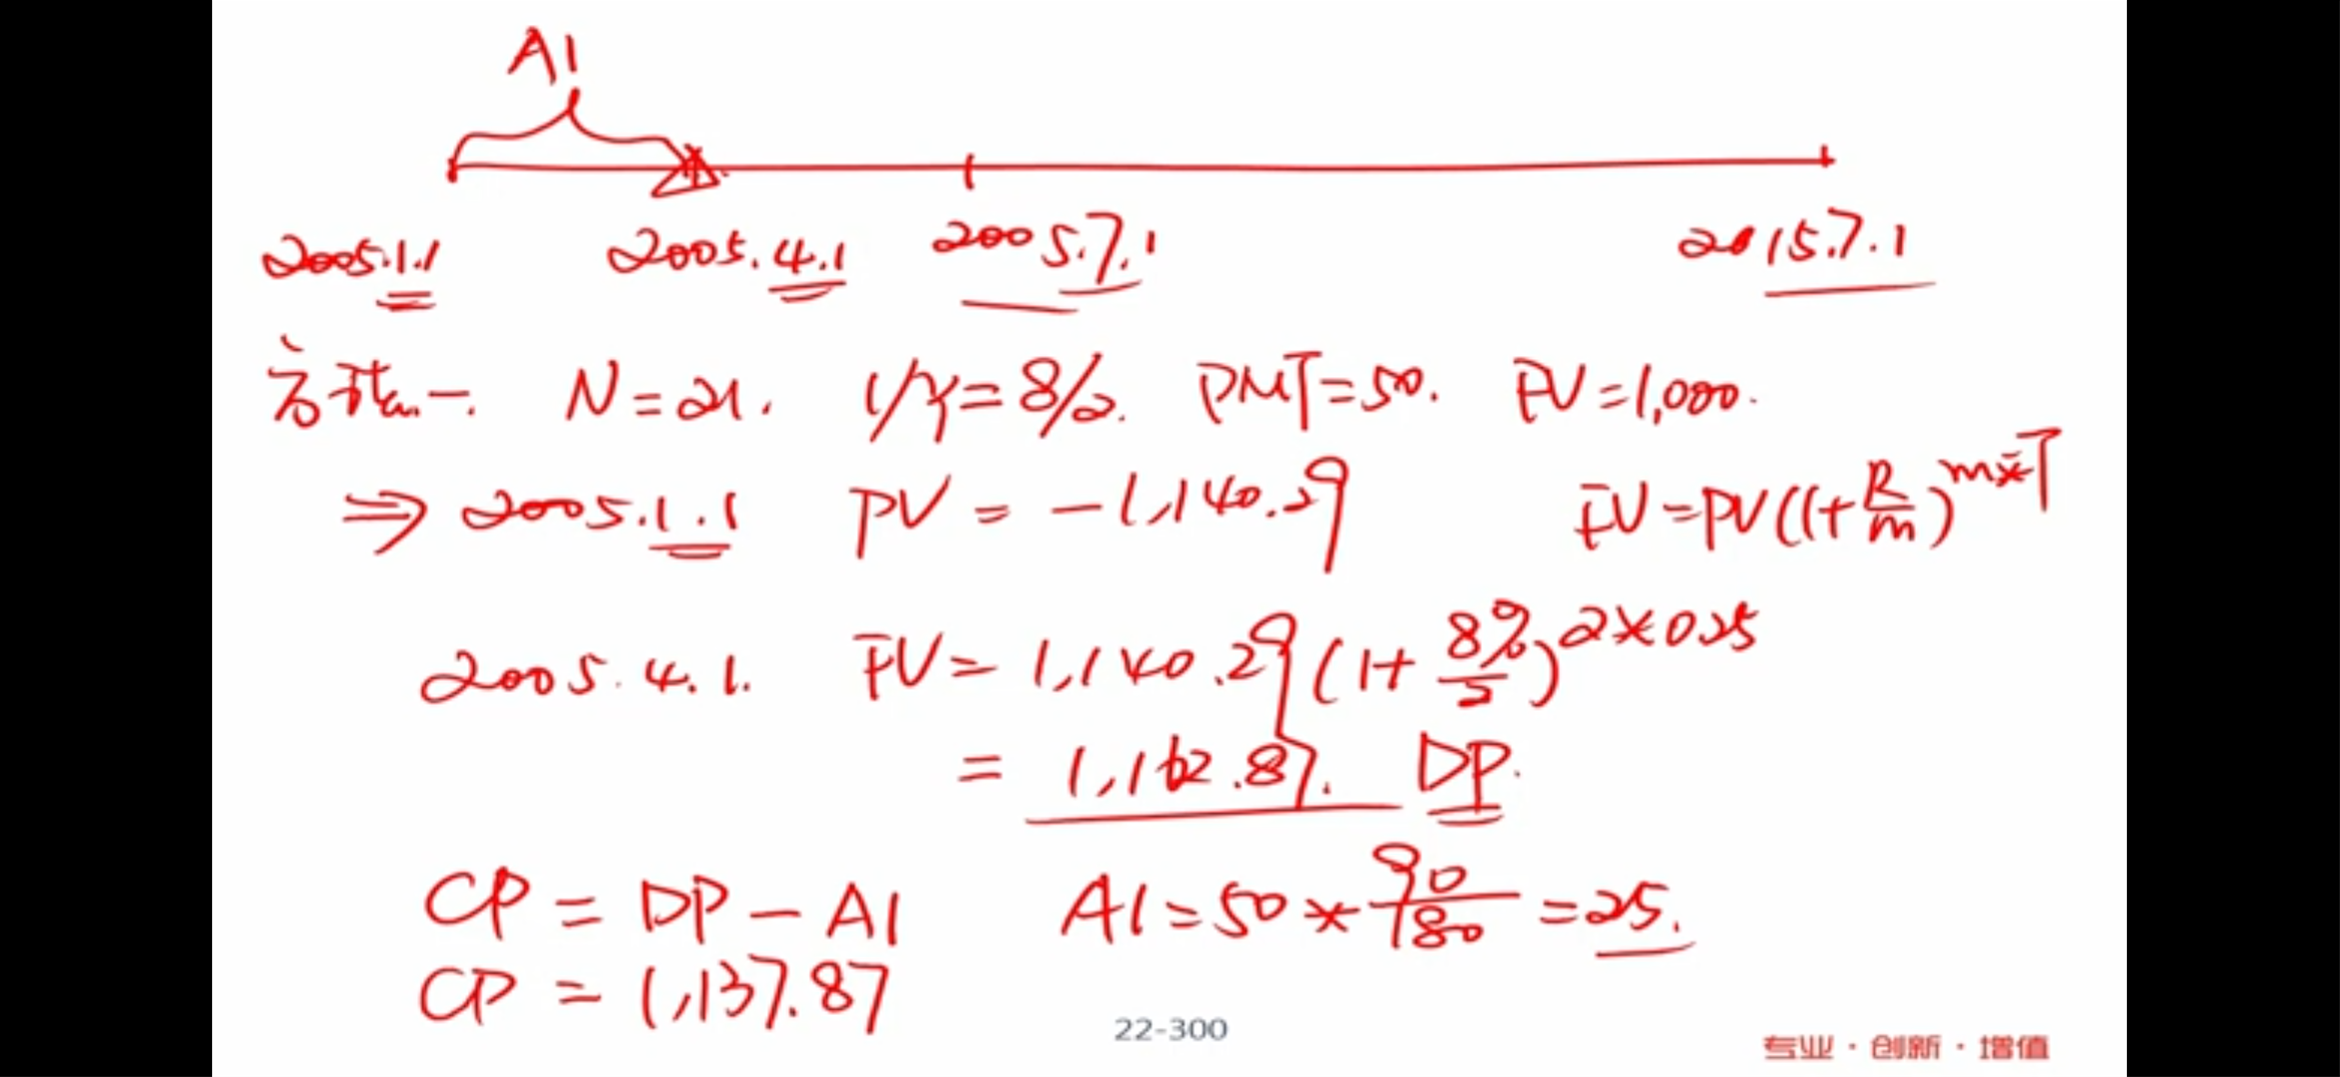 AI
2005.1.1 2005.4.1 2005.7.1 2015.7.1
方法一. N=21. I/Y=8/2. PMT=50. FV=1,000.
⇒ 2005.1.1 PV = -1,140.29 FV=PV(1+R/m)^m*T
2005.4.1. FV= 1,140.29(1+8%/2)^2*0.25
= 1,162.87. DP.
CP = DP - AI AI=50*90/180=25.
CP = 1,137.87
22-300
专业·创新·增值